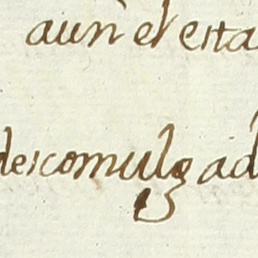 aun el esta
descomulgad